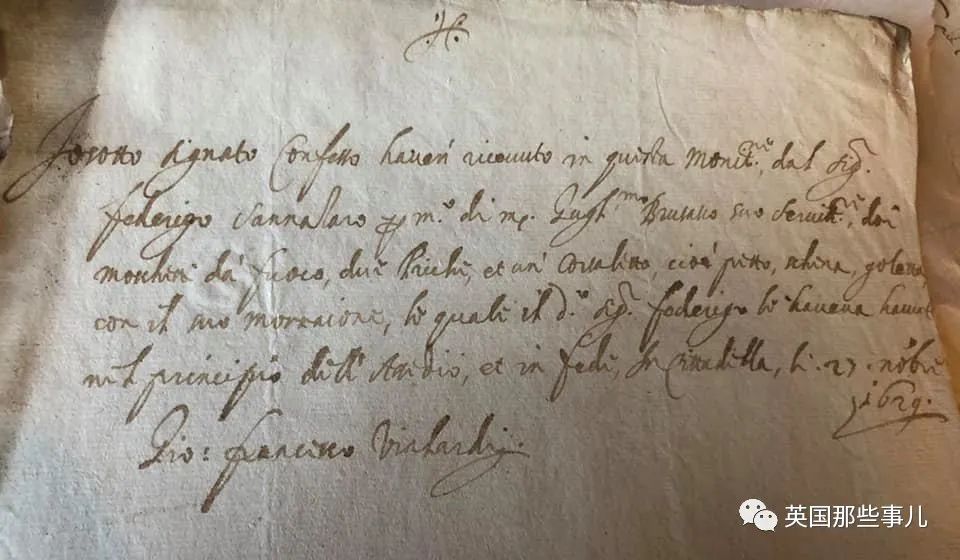 .H.
Io sotto signato Confesso haver ricevuto in questa monit.ne, dal Sig.r
federigo Sannazaro p m.o di m. Gugl.mo Brusasco suo servit.re, doi
moschetti da fuoco, due Picche, et un Corsaletto, cioè petto, schina, goletta,
con il suo morraione, le quali il d.o Sig.r federigo le haveva havute
nel principio dell' Assedio, et in fede, In Cittadella, li 27 nobre
1629.
Gio: francesco
英国那些事儿